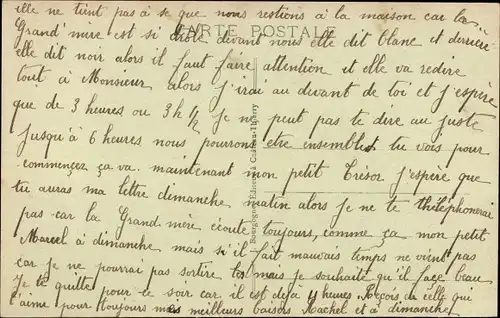 elle ne tient pas à se que nous restions à la maison car la
Grand'mère est si devant nous elle dit blanc et derrière
CARTE POSTALE
elle dit noir alors il faut faire attention et elle va redire
tout à Monsieur alors j'irai au devant de toi et j'espère
que de 3 heures ou 3h ½ Je ne peut pas te dire au juste
Jusqu'à 6 heures nous pourrons être ensembles tu vois pour
commençez ça va. maintenant mon petit Trésor j'espère que
tu auras ma lettre dimanche matin alors je ne te théléphonerai
pas car la Grand mère écoute toujours, comme ça mon petit
Marcel à dimanche mais si il fait mauvais temps ne vient pas
car je ne pourrai pas sortire mais je souhaite qu'il façe beau
Je te quitte pour ce soir car il est déjà 4 heures Reçois de celle qui
t'aime pour toujours mes meilleurs baisers Rachel et à dimanche
Bourgogne, Éditeur, Château-Thierry